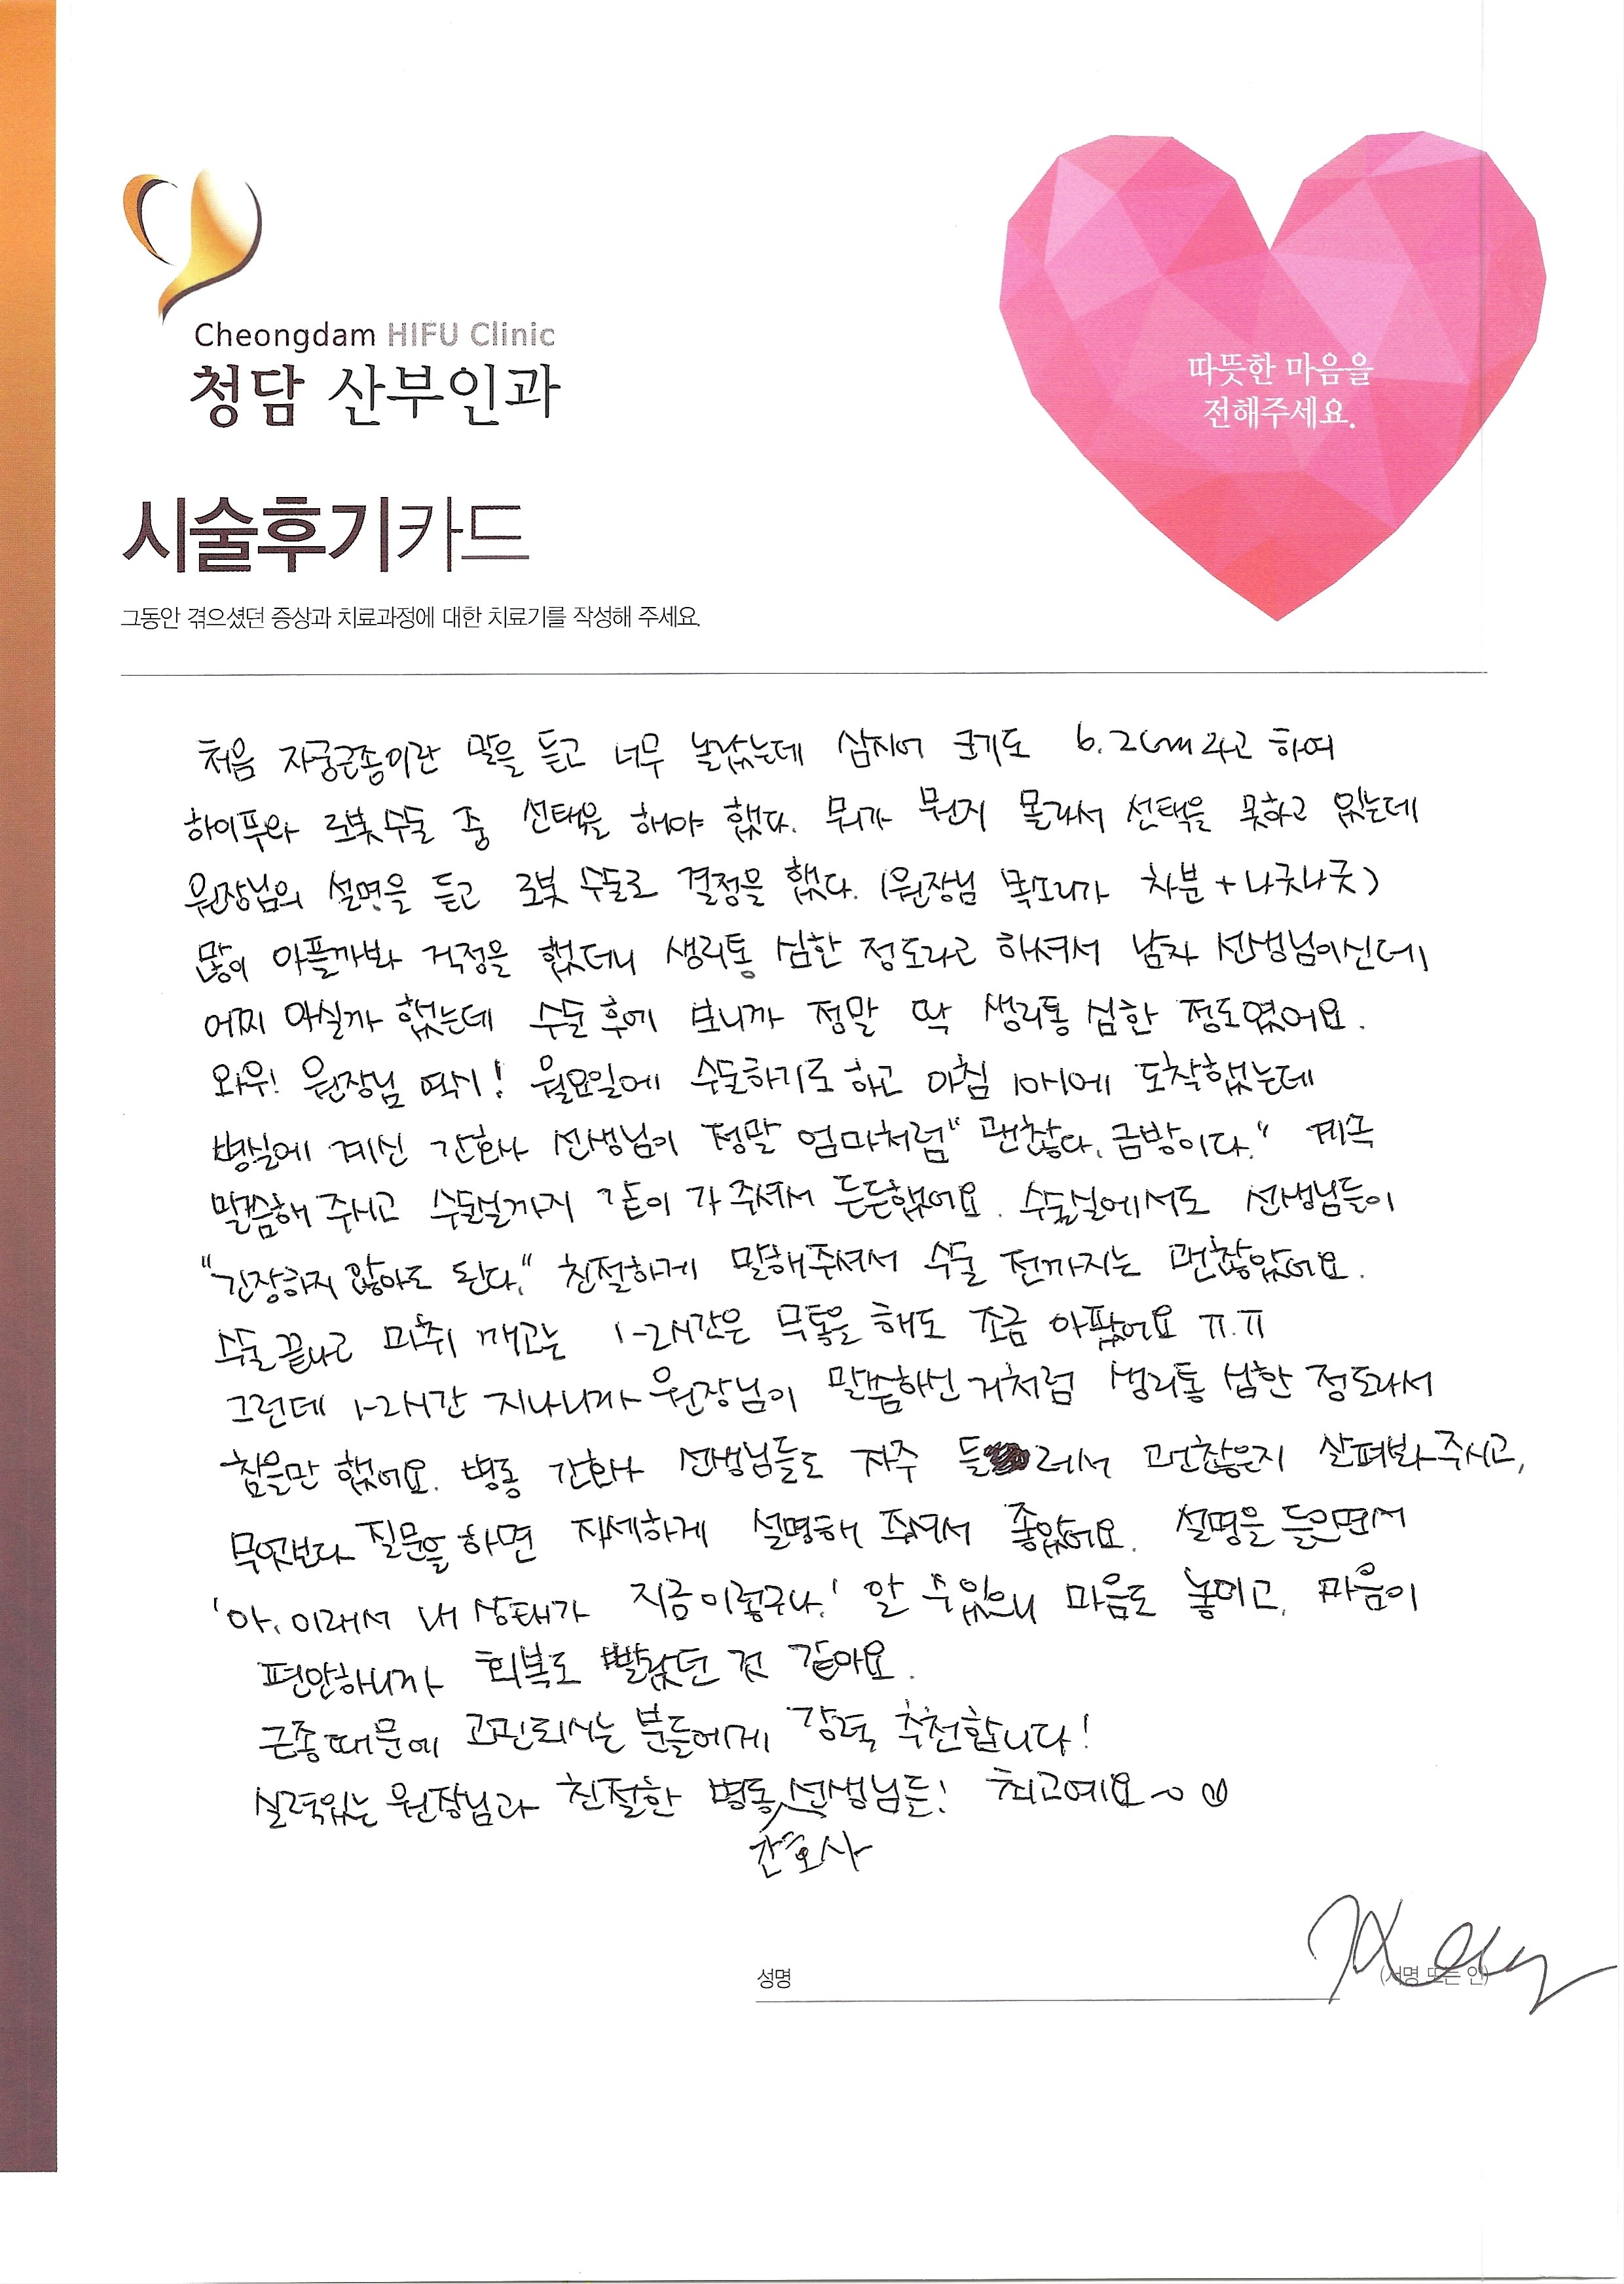 Cheongdam HIFU Clinic
청담 산부인과
따뜻한 마음을
전해주세요.
시술후기카드
그동안 겪으셨던 증상과 치료과정에 대한 치료기를 작성해 주세요.
처음 자궁근종이란 말을 듣고 너무 놀랐는데 심지어 크기도 6.2cm라고 하여
하이푸와 로봇수술 중 선택을 해야 했다. 뭐가 뭔지 몰라서 선택을 못하고 있는데
원장님의 설명을 듣고 로봇 수술로 결정을 했다. (원장님 목소리가 차분+나긋나긋)
많이 아플까봐 걱정을 했더니 생리통 심한 정도라고 하셔서 남자 선생님이신데,
어찌 아실까 했는데 수술 후에 보니까 정말 딱 생리통 심한 정도였어요.
와우! 원장님 역시! 월요일에 수술하기로 하고 아침 10시에 도착했는데
병실에 계신 간호사 선생님이 정말 엄마처럼 "괜찮다. 금방이다." 계속
말씀해 주시고 수술실까지 같이 가 주셔서 든든했어요. 수술실에서도 선생님들이
"긴장하지 않아도 된다." 친절하게 말해주셔서 수술 전까지는 괜찮았어요.
수술 끝나고 마취 깨고는 1-2시간은 무통을 해도 조금 아팠어요 ㅠ.ㅠ
그런데 1-2시간 지나니까 원장님이 말씀하신 거처럼 생리통 심한 정도라서
참을만 했어요. 병동 간호사 선생님들도 자주 들러서 괜찮은지 살펴봐주시고,
무엇보다 질문을 하면 자세하게 설명해 주셔서 좋았어요. 설명을 들으면서
'아, 이래서 내 상태가 지금 이렇구나.' 알 수 있으니 마음도 놓이고, 마음이
편안하니까 회복도 빨랐던 것 같아요.
근종때문에 고민되시는 분들에게 강력 추천합니다!
실력있는 원장님과 친절한 병동 선생님들! 최고예요~
간호사
성명
(서명 또는 인)